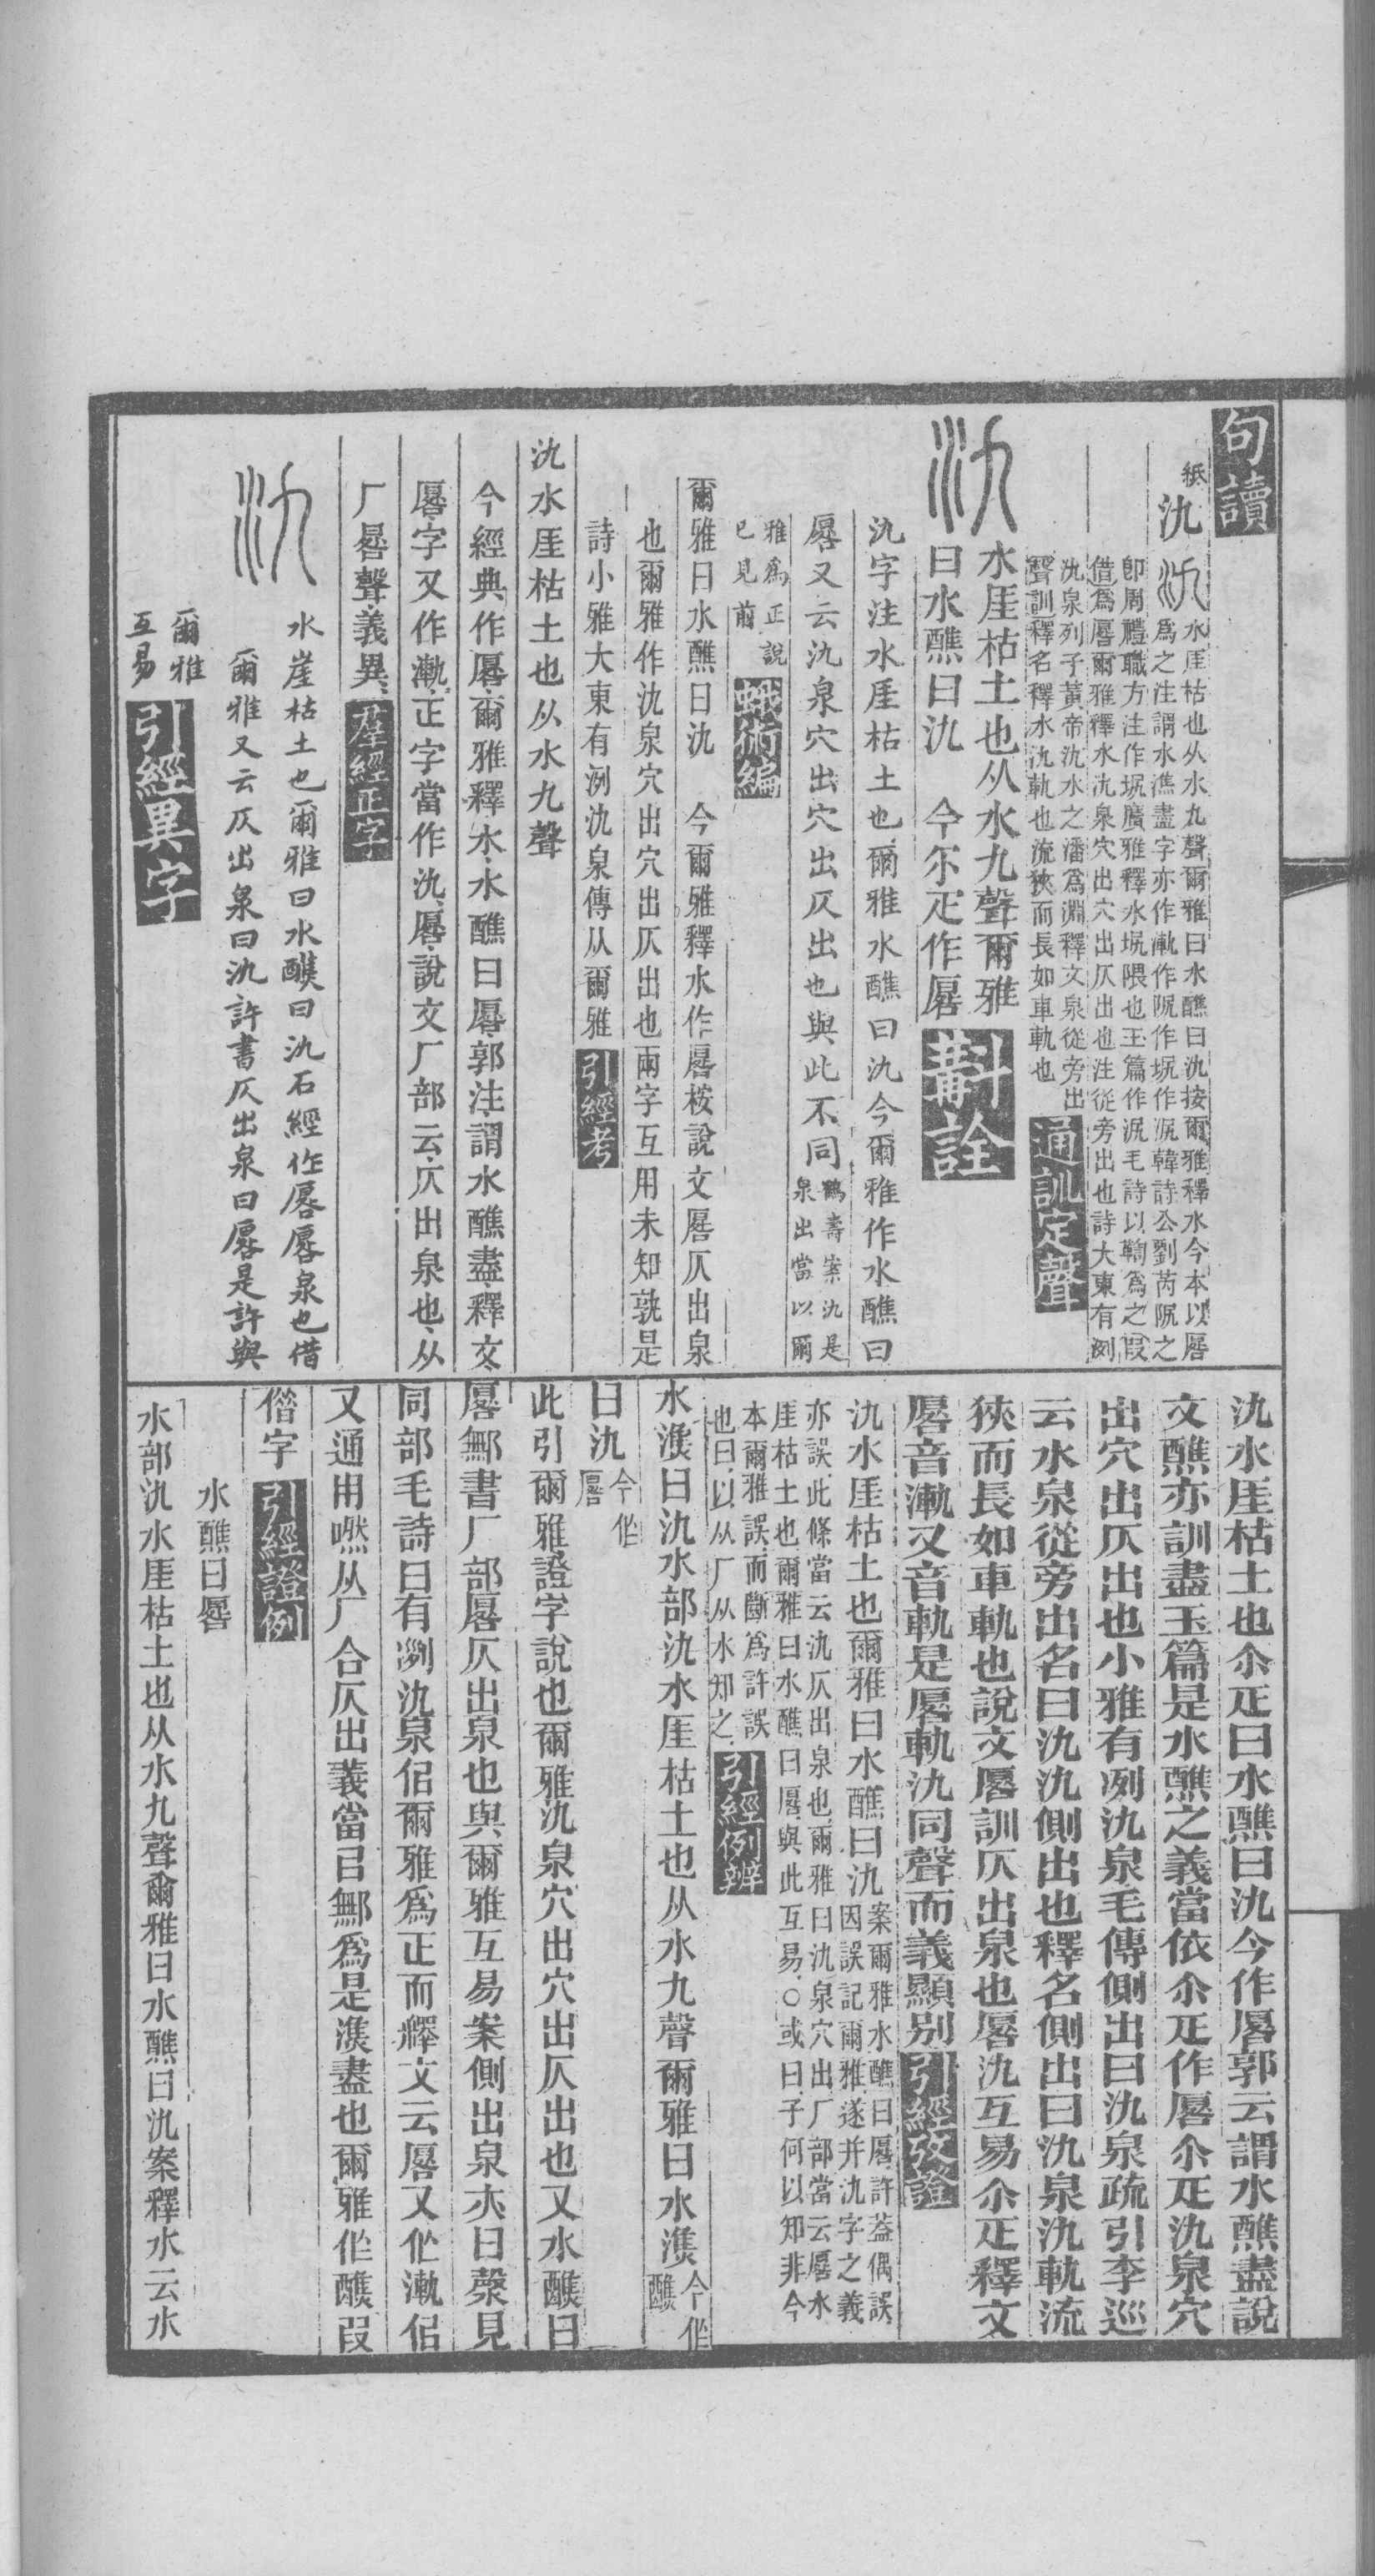 句讀
紙
氿
水厓枯也从水九聲爾雅曰水醮曰氿按爾雅釋水今本以厬
爲之注謂水漅盡字亦作漸作阮作坭作泥韓詩公劉芮阮之
卽周禮職方注作坭廣雅釋水坭隈也玉篇作泥毛詩以鞫爲之叚
借爲厬爾雅釋水氿泉穴出穴出仄出也注從旁出也詩大東有冽
氿泉列子黃帝氿水之潘爲淵釋文泉從旁出
聲訓釋名釋水氿軌也流狹而長如車軌也
通訓定聲
水厓枯土也从水九聲爾雅
曰水醮曰氿 今尒疋作厬
斠詮
氿字注水厓枯土也爾雅水醮曰氿今爾雅作水醮曰
厬又云氿泉穴出穴出仄出也與此不同
鶴壽案氿是
泉出當以爾
雅爲正說
已見前
蛾術編
爾雅曰水醮曰氿 今爾雅釋水作厬桉說文厬仄出泉
也爾雅作氿泉穴出穴出仄出也兩字互用未知孰是
詩小雅大東有洌氿泉傳从爾雅
引經考
氿水厓枯土也从水九聲
今經典作厬爾雅釋水水醮曰厬郭注謂水醮盡釋文
厬字又作漸正字當作氿厬說文厂部云仄出泉也从
厂晷聲義異
羣經正字
水崖枯土也爾雅曰水醮曰氿石經作厬厬泉也借
爾雅又云仄出泉曰氿許書仄出泉曰厬是許與
爾雅
互易
引經異字
氿水厓枯土也尒疋曰水醮曰氿今作厬郭云謂水醮盡說
文醮亦訓盡玉篇是水醮之義當依尒疋作厬尒疋氿泉穴
出穴出仄出也小雅有冽氿泉毛傳側出曰氿泉疏引李巡
云水泉從旁出名曰氿氿側出也釋名側出曰氿泉氿軌流
狹而長如車軌也說文厬訓仄出泉也厬氿互易尒疋釋文
厬音漸又音軌是厬軌氿同聲而義顯別
引經攷證
氿水厓枯土也爾雅曰水醮曰氿
案爾雅水醮曰厬許葢偶誤
因誤記爾雅遂并氿字之義
亦誤此條當云氿仄出泉也爾雅曰氿泉穴出厂部當云厬水
厓枯土也爾雅曰水醮曰厬與此互易○或曰子何以知非今
本爾雅誤而斷爲許誤
也曰以从厂从水知之
引經例辨
水漅曰氿水部氿水厓枯土也从水九聲爾雅曰水漅
今作
醮
曰氿
今作
厬
此引爾雅證字說也爾雅氿泉穴出穴出仄出也又水醮曰
厬鄦書厂部厬仄出泉也與爾雅互易案側出泉亦曰漀見
同部毛詩曰有洌氿泉侣爾雅爲正而釋文云厬又作漸侣
又通用嘫从厂合仄出義當吕鄦爲是漅盡也爾雅作醮叚
僭字
引經證例
水醮曰厬
水部氿水厓枯土也从水九聲爾雅曰水醮曰氿案釋水云水